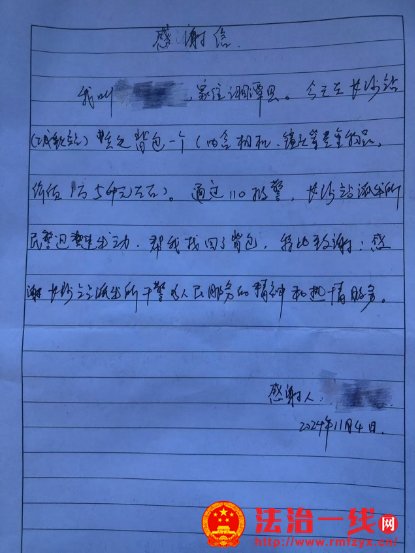 感谢信
我叫 ，家住湘潭县。今天在长沙站
背包一个（内含相机、镜头等贵重物品，
价值 5千元左右）。通过110报警，长沙站派出所
民警迅速出动，帮我找回了背包，特此致谢！感
谢长沙站派出所干警为人民服务的精神和热情服务。
感谢人：
2024年11月4日.
法治一线网
http://www.rmfzyx.cn/